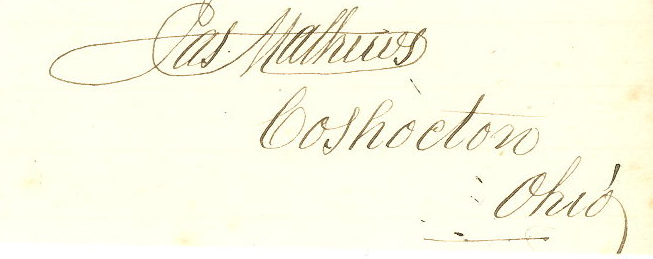 Jas Mathews
Coshocton
Ohio